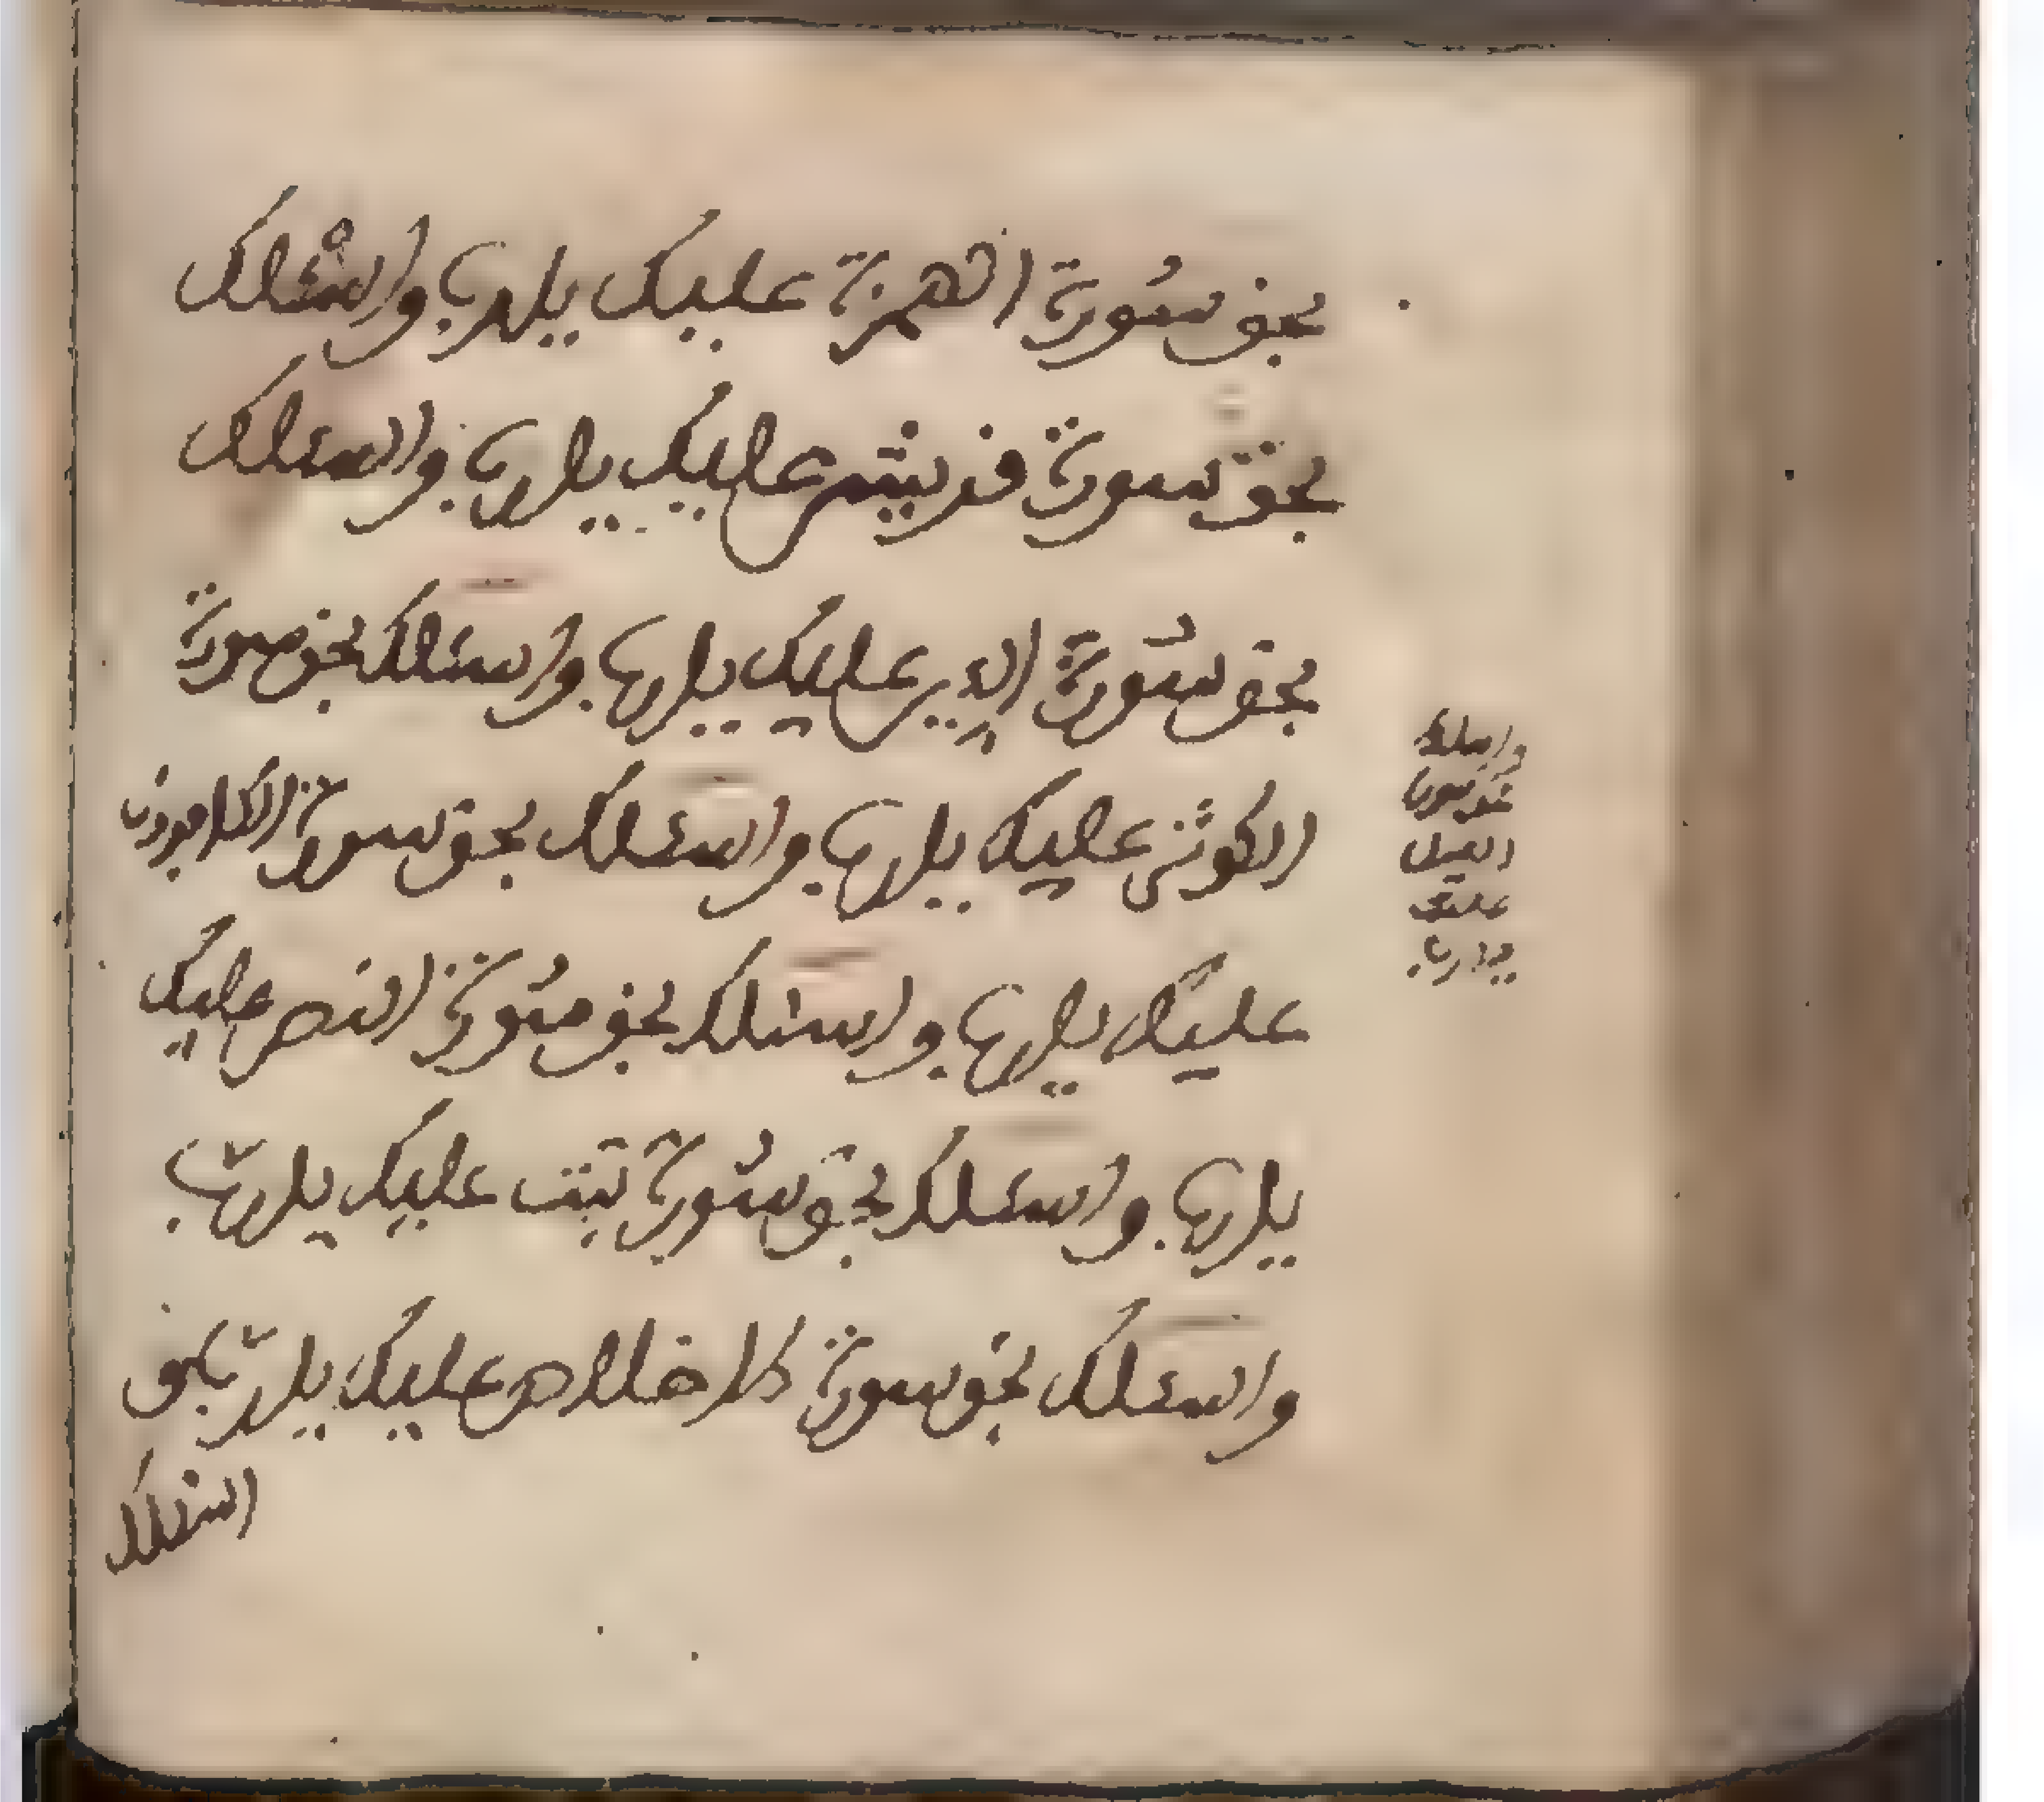 بحق سُورة الهمزة عليك يارب واسْئلك
بحق سورة قريش عليك يارب واسئلك
بحق سُورة الدين عليك يارب واسئلك بحق سورة
الكوثر عليك يارب واسئلك بحق سورة الكافرون
عليك يارب واسئلك بحق سُورة النصر عليك
يارب واسئلك بحق سُورة تبت عليك يارب
واسئلك بحق سورة الاخلاص عليك ياربّ بحق
اسئلك
واسئلك
بحق سورة
الفيل
عليك
يارب